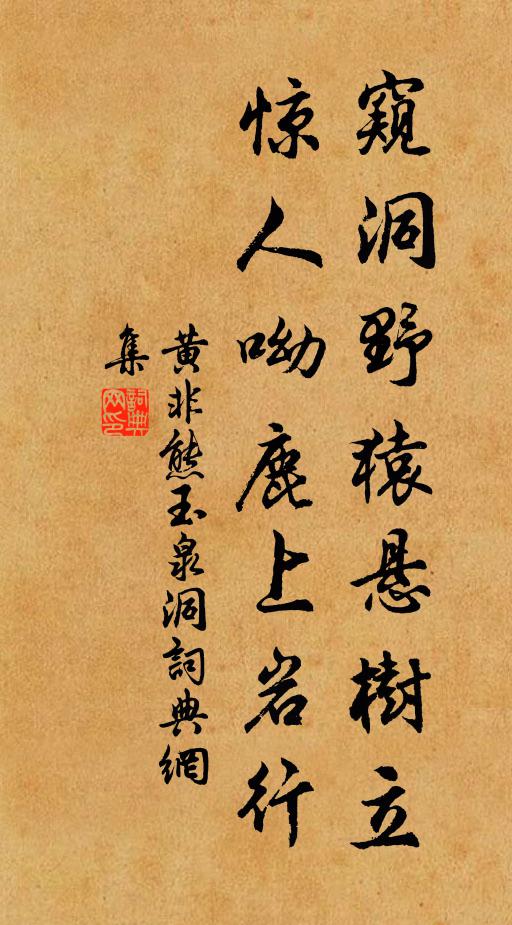 窺洞野猿悬樹立
惊人呦鹿上岩行
黄非熊玉泉洞詞典網
集
詞典
网印